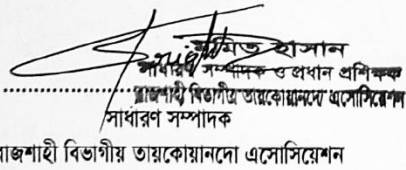 হাসান
সাধারণ সম্পাদক ও প্রধান প্রশিক্ষক
রাজশাহী বিভাগীয় তায়কোয়ানদো এসোসিয়েশন
সাধারণ সম্পাদক
রাজশাহী বিভাগীয় তায়কোয়ানদো এসোসিয়েশন